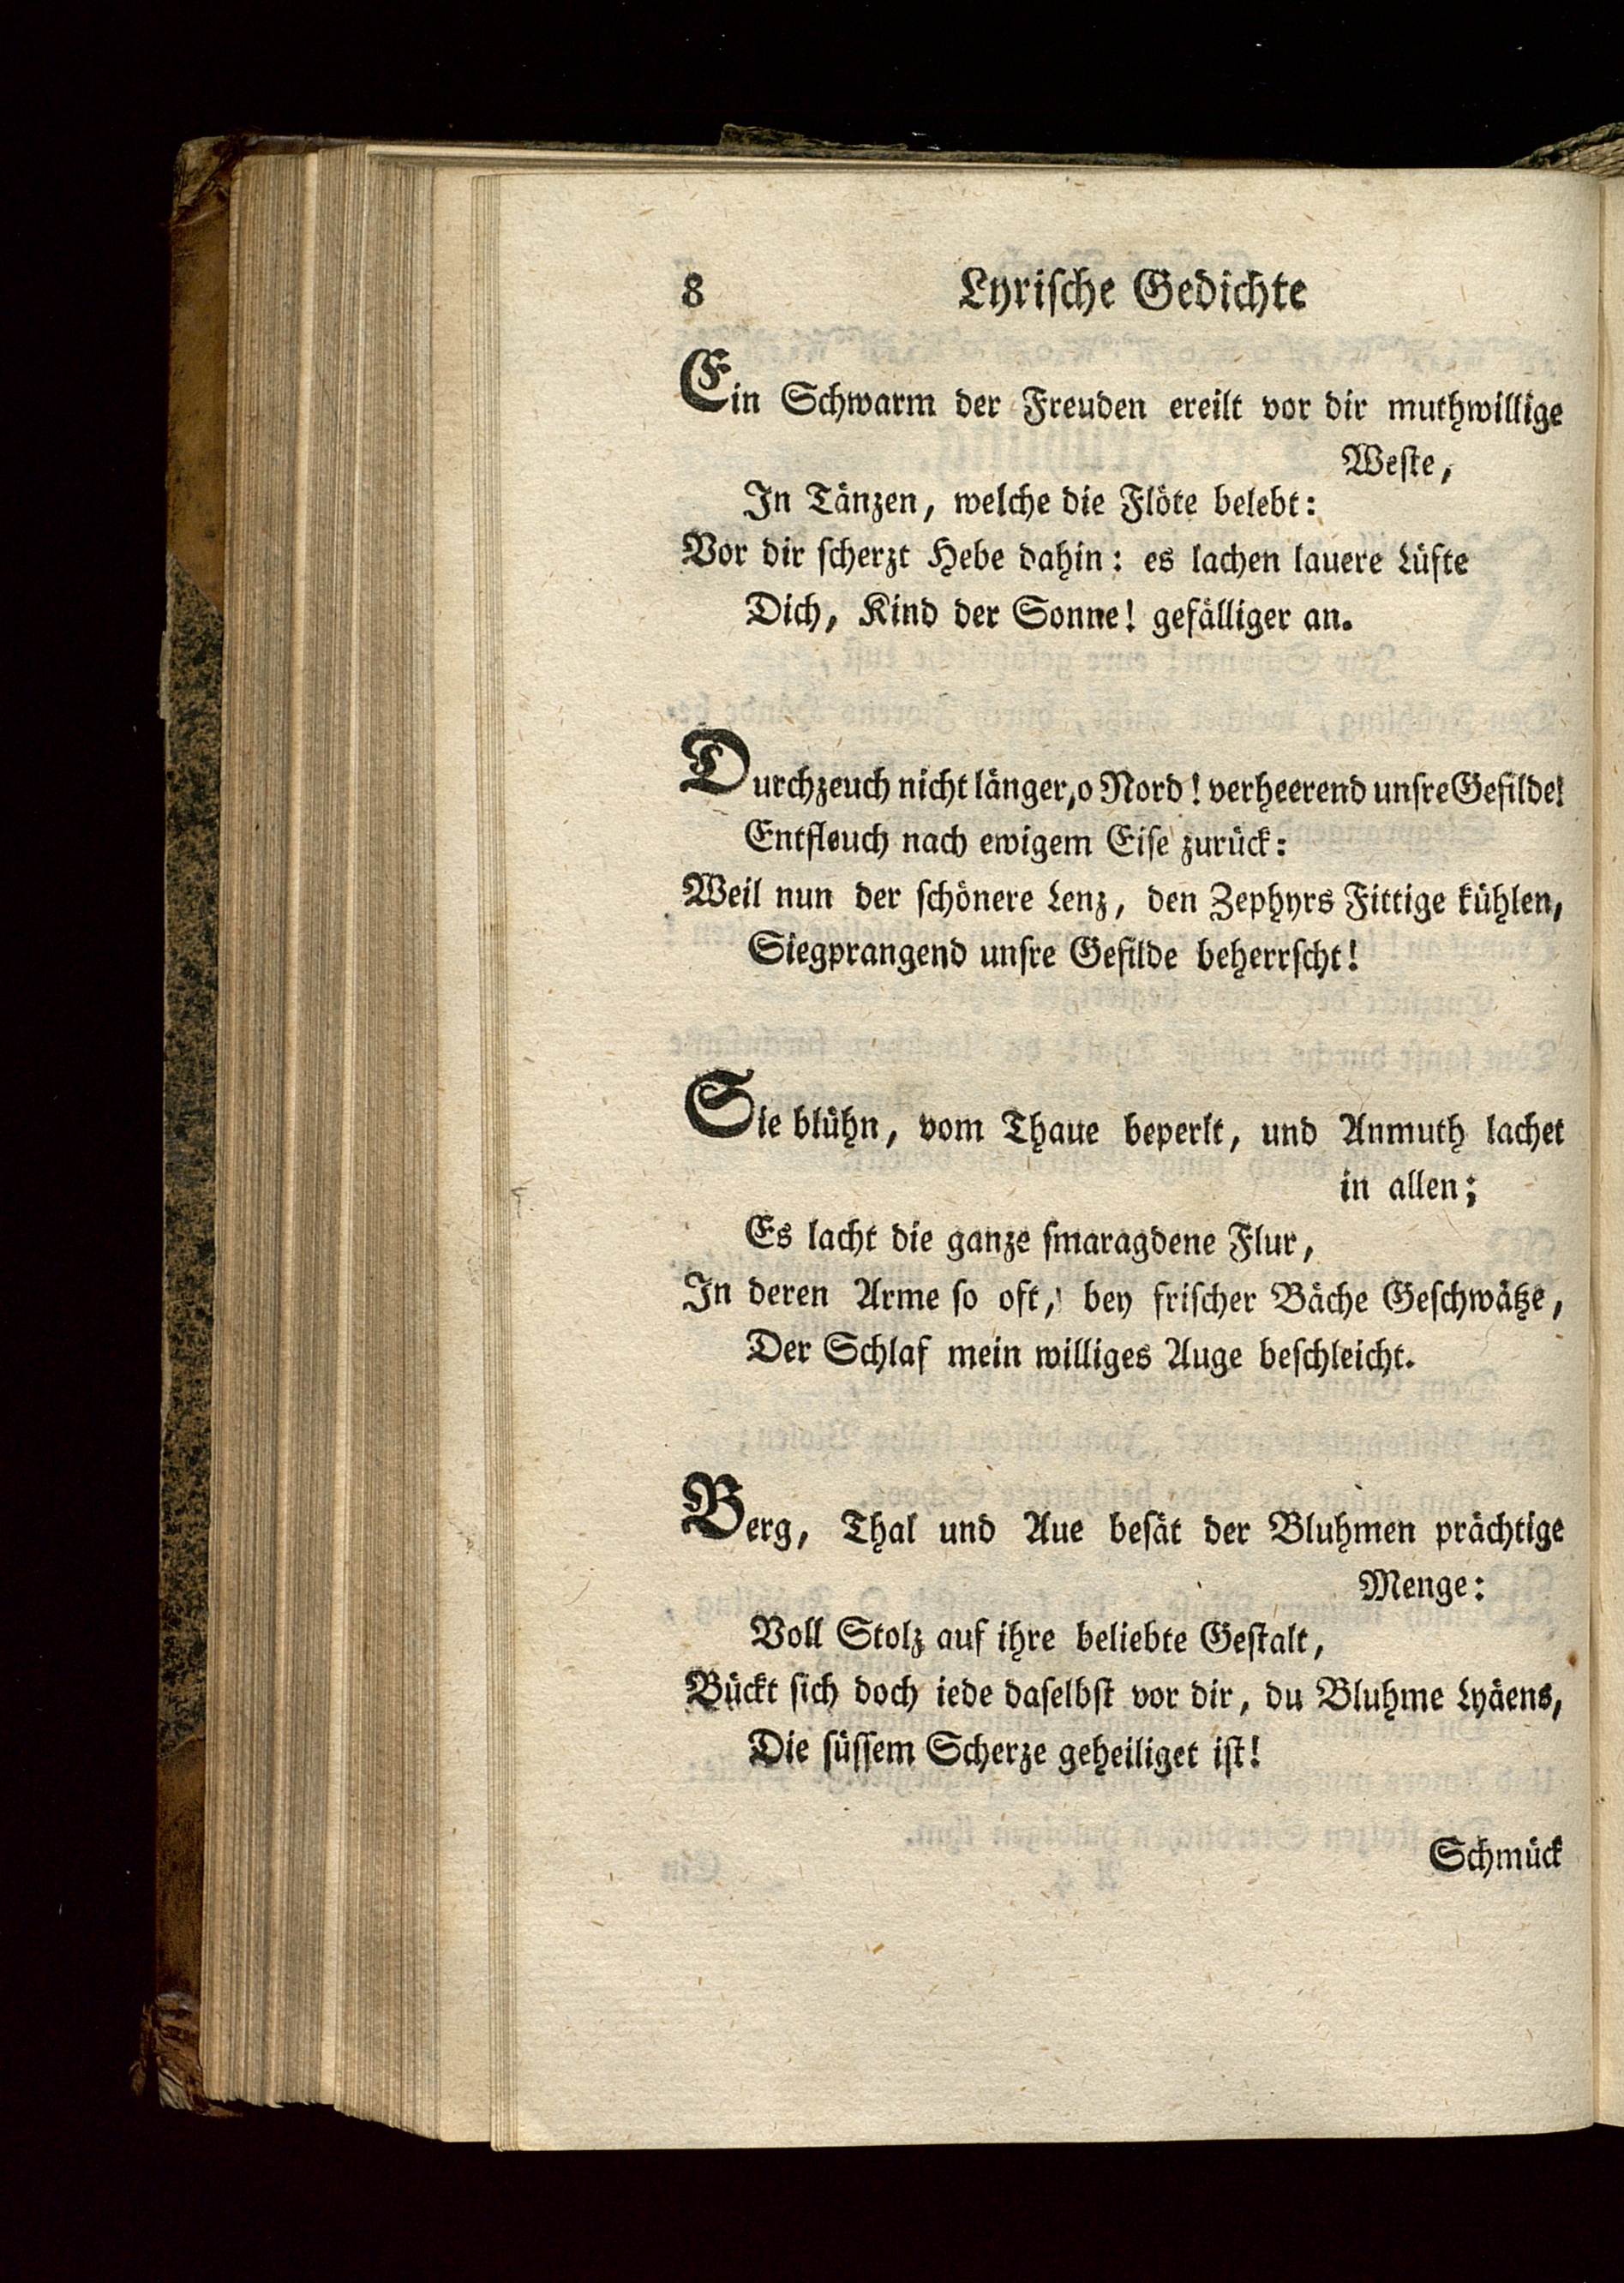 8 Lyrische Gedichte
Ein Schwarm der Freuden ereilt vor dir muthwillige
Weste,
In Tänzen, welche die Flöte belebt:
Vor dir scherzt Hebe dahin: es lachen lauere Lüfte
Dich, Kind der Sonne! gefälliger an.
Durchzeuch nicht länger, o Nord! verheerend unsre Gefilde!
Entfleuch nach ewigem Eise zurück:
Weil nun der schönere Lenz, den Zephyrs Fittige kühlen,
Siegprangend unsre Gefilde beherrscht!
Sie blühn, vom Thaue beperlt, und Anmuth lachet
in allen;
Es lacht die ganze smaragdene Flur,
In deren Arme so oft, bey frischer Bäche Geschwätze,
Der Schlaf mein williges Auge beschleicht.
Berg, Thal und Aue besät der Bluhmen prächtige
Menge:
Voll Stolz auf ihre beliebte Gestalt,
Bückt sich doch iede daselbst vor dir, du Bluhme Lyäens,
Die süssem Scherze geheiliget ist!
Schmück